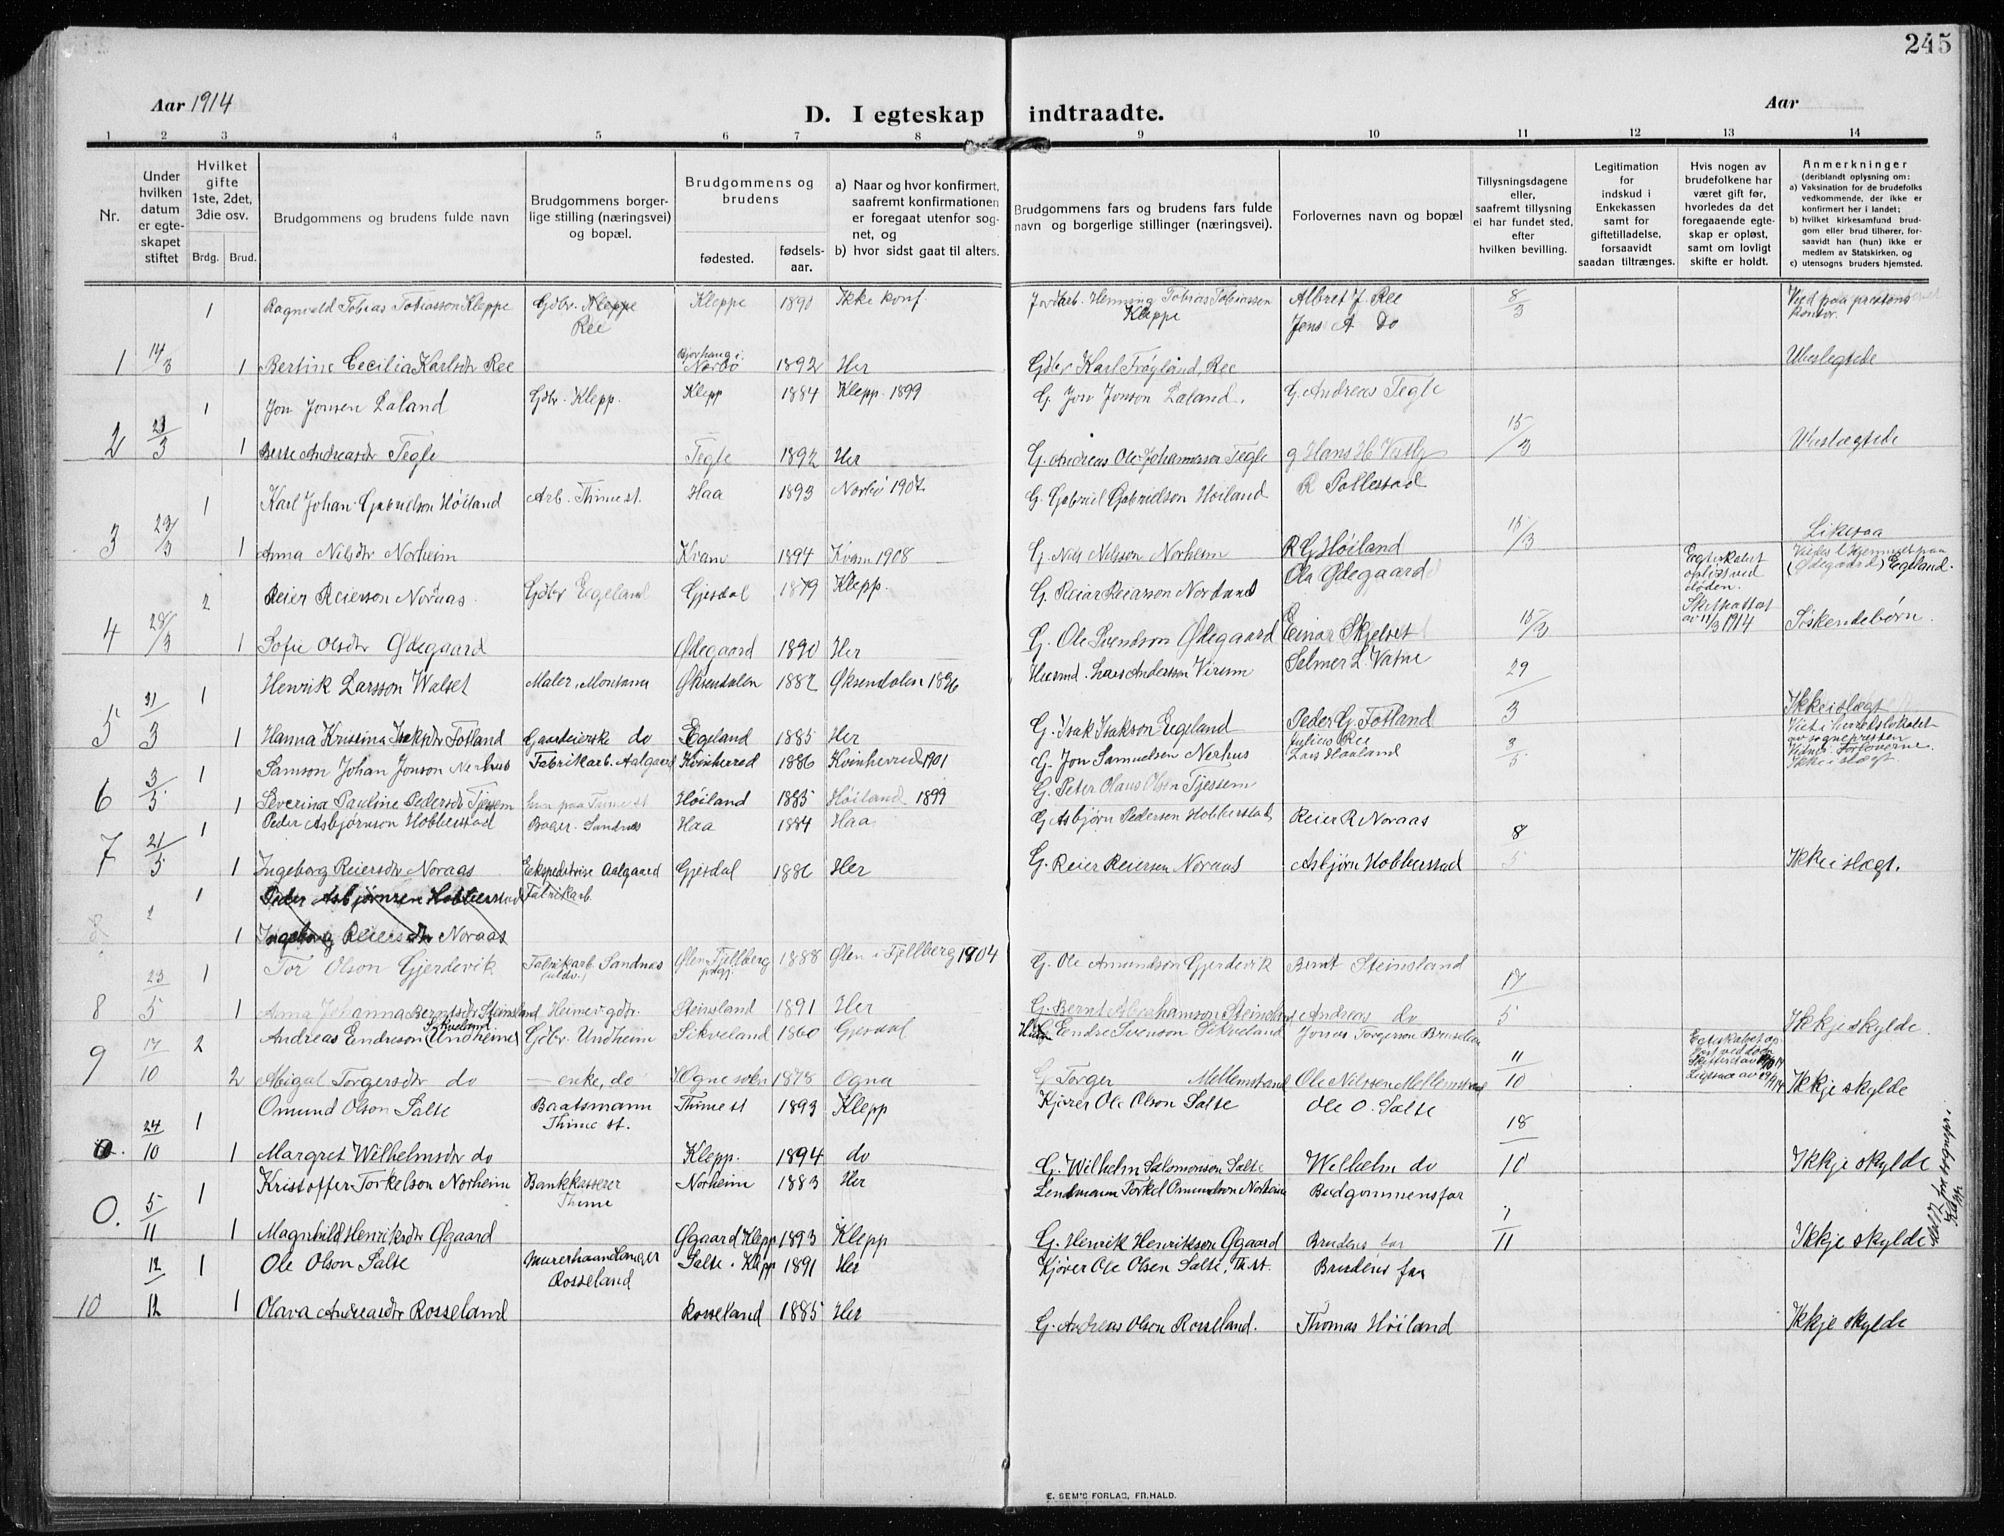 245
Aar 1914
D. I egteskap indtraadte.
Aar
1 2 3 4 5 6 7 8 9 10 11 12 13 14
Nr.
Under hvilken datum er egteskapet stiftet
Hvilket gifte 1ste, 2det, 3die osv.
Brdg. Brud.
Brudgommens og brudens fulde navn
Brudgommens borgerlige stilling (næringsvei) og bopæl.
Brudgommens og brudens
fødested.
fødselsaar.
a) Naar og hvor konfirmert, saafremt konfirmationen er foregaat utenfor sognet, og
b) hvor sidst gaat til alters.
Brudgommens fars og brudens fars fulde navn og borgerlige stillinger (næringsvei).
Forlovernes navn og bopæl
Tillysningsdagene eller, saafremt tillysning ei har fundet sted, efter hvilken bevilling.
Legitimation for indskud i Enkekassen samt for giftetilladelse, forsaavidt saadan tiltrænges.
Hvis nogen av brudefolkene har været gift før, hvorledes da det foregaaende egteskap er opløst, samt om lovligt skifte er holdt.
Anmerkninger (deriblandt oplysning om:
a) Vaksination for de brudefolks vedkommende, der ikke er konfirmert her i landet;
b) hvilket kirkesamfund brudgom eller brud tilhører, forsaavidt han (hun) ikke er medlem av Statskirken, og
c) utensogns bruders hjemsted.
1 Ragnvald Tobias Tobiasson Kleppe Gdbr. Kleppe Ree Kleppe 1890 Ikke konf. Henning Tobias Tobiassen Kleppe Albret J. Ree Jens A do 8/3 Vied paa prestens kontor.
1 14/3 1 Bertine Cecilia Karlsdtr Ree Bjorhaug i Nærbø 1892 Her Gdbr Karl Frøyland, Ree Ubeslegtede
1 Jon Jonsen Laland Gdbr. Klepp. Klepp 1884 Klepp. 1899 G. Jon Jonson Laland. G. Andreas Tegle 15/3
2 21/3 1 Berte Andreasdtr Tegle Tegle 1892 Her G. Andreas Ole Johannesson Tegle g Hans H. Ubeslegtede
1 Karl Johan Gabrielson Høiland Arb. Thime st. Haa 1893 Nærbø 1907 G. Gabriel Gabrielson Høiland R Pollestad 15/3
3 29/3 1 Anna Nilsdtr Norheim Kvam 1894 Kvam 1908 G. Nils Nilsson Norheim R G Høiland Likesaa
2 Reier Reierson Noraas Gdbr Egeland Gjesdal 1879 Klepp. G. Reiar Reiarson Ola Ødegaard 15/3 Egteskabet opløst ved døden. av 11/3 1914 (Ødegaard) Egeland.
4 28/3 1 Sofie Olsdtr Ødegaard Ødegaard 1890 Her G. Ole Svendson Ødegaard Einar Skjelset Søskendebørn.
1 Henrik Larsson Walset Maler, Montana Øksendalen 1882 Øksendalen 1896 Husmd. Lars Andersson Virum Selmer L. Vatne 29/3
5 31/3 1 Hanna Kristina Isaksdtr Fotland Gaardeierske do Egeland 1885 Her G. Isak Isakson Egeland Peder G. Fotland Ikke i slægt
1 Samson Johan Jonson Nerhus Fabrikarb. Aalgaard Kvinherred 1886 Kvinherred 1901 G. Jon Samuelsen Nerhus Julius Ree Lars Haaland 3/5 Viet i herredslokalet av sognepresten Vidner: Forloverne. Ikke i slægt.
6 3/5 1 Severina Pauline Pedersdtr Tjessem hun paa Thime st Høiland 1885 Høiland 1899 G. Peter Olaus Olsen Tjessem
1 Peder Asbjørnson Hobberstad Bager. Sandnæs Haa 1884 Haa G Asbjørn Pedersen Hobberstad Reier R. Noraas 8/5
7 21/5 1 Ingeborg Reiersdtr Noraas Ekspeditrise Aalgaard Gjesdal 1886 Her G. Reier Reiersen Noraas Asbjørn Hobberstad Ikke i slægt.
1 Peder Asbjørnsen Hobberstad Fabrikarb.
8 1 Ingeborg Reiersdtr Noraas
23/5 1 Tor Olson Gjerdevik Fabrikarb. Sandnæs (uldv.) Ølen Fjellberg prgj. 1888 Ølen i Fjellberg 1904 G. Ole Amundson Gjerdevik Bernt Steinsland 17/5
8 1 Anna Johanna Berntsdtr Steinsland Heimev. gdtr. Steinsland 1891 Her G. Bernt Abrahamson Steinsland Andreas do Ikkje skylde.
9 17/10 2 Andreas Endreson Sikveland (Undheim) Gdbr. Undheim Sikveland 1860 Gjesdal Endre Svenson Sikveland Jonas Torgerson 11/10 Egteskabet opløst ved død
2 Abigal Torgersdtr do enke, do Ogne sokn 1878 Ogna G Torger Mellemstrand Ole Nilssen Mellemstrand Ikkje skylde
24/10 1 Omund Olson Salte Baatsmann Thime st. Thime st 1893 Klepp Kjører Ole Olson Salte Ole O. Salte 18/10
0. 1 Margret Wilhelmsdtr do Klepp. 1894 do G. Wilhelm Salomonson Salte Wilhelm do Ikkje skylde
0. 5/11 1 Kristoffer Torkelson Norheim Bankkasserer Thime Norheim 1883 Her Lendsmann Torkel Omundson Norheim Brudgommens far 1/11
1 Magnhild Henriksdtr Øgaard Øgaard Klepp 1893 Klepp G. Henrik Henrikson Øgaard Brudens far Ikkje skylde
Meldt for sognepr. i Klepp
12/12 1 Ole Olson Salte Murerhaandlanger Rosseland Salte. Klepp 1891 Her Kjører Ole Olsen Salte, Th. st. Brudens far
10 1 Olava Andreasdtr Rosseland Rosseland 1885 Her G. Andreas Olson Rosseland. Thomas Høiland Ikkje skylde
E. SEM'S FORLAG, FR.HALD.